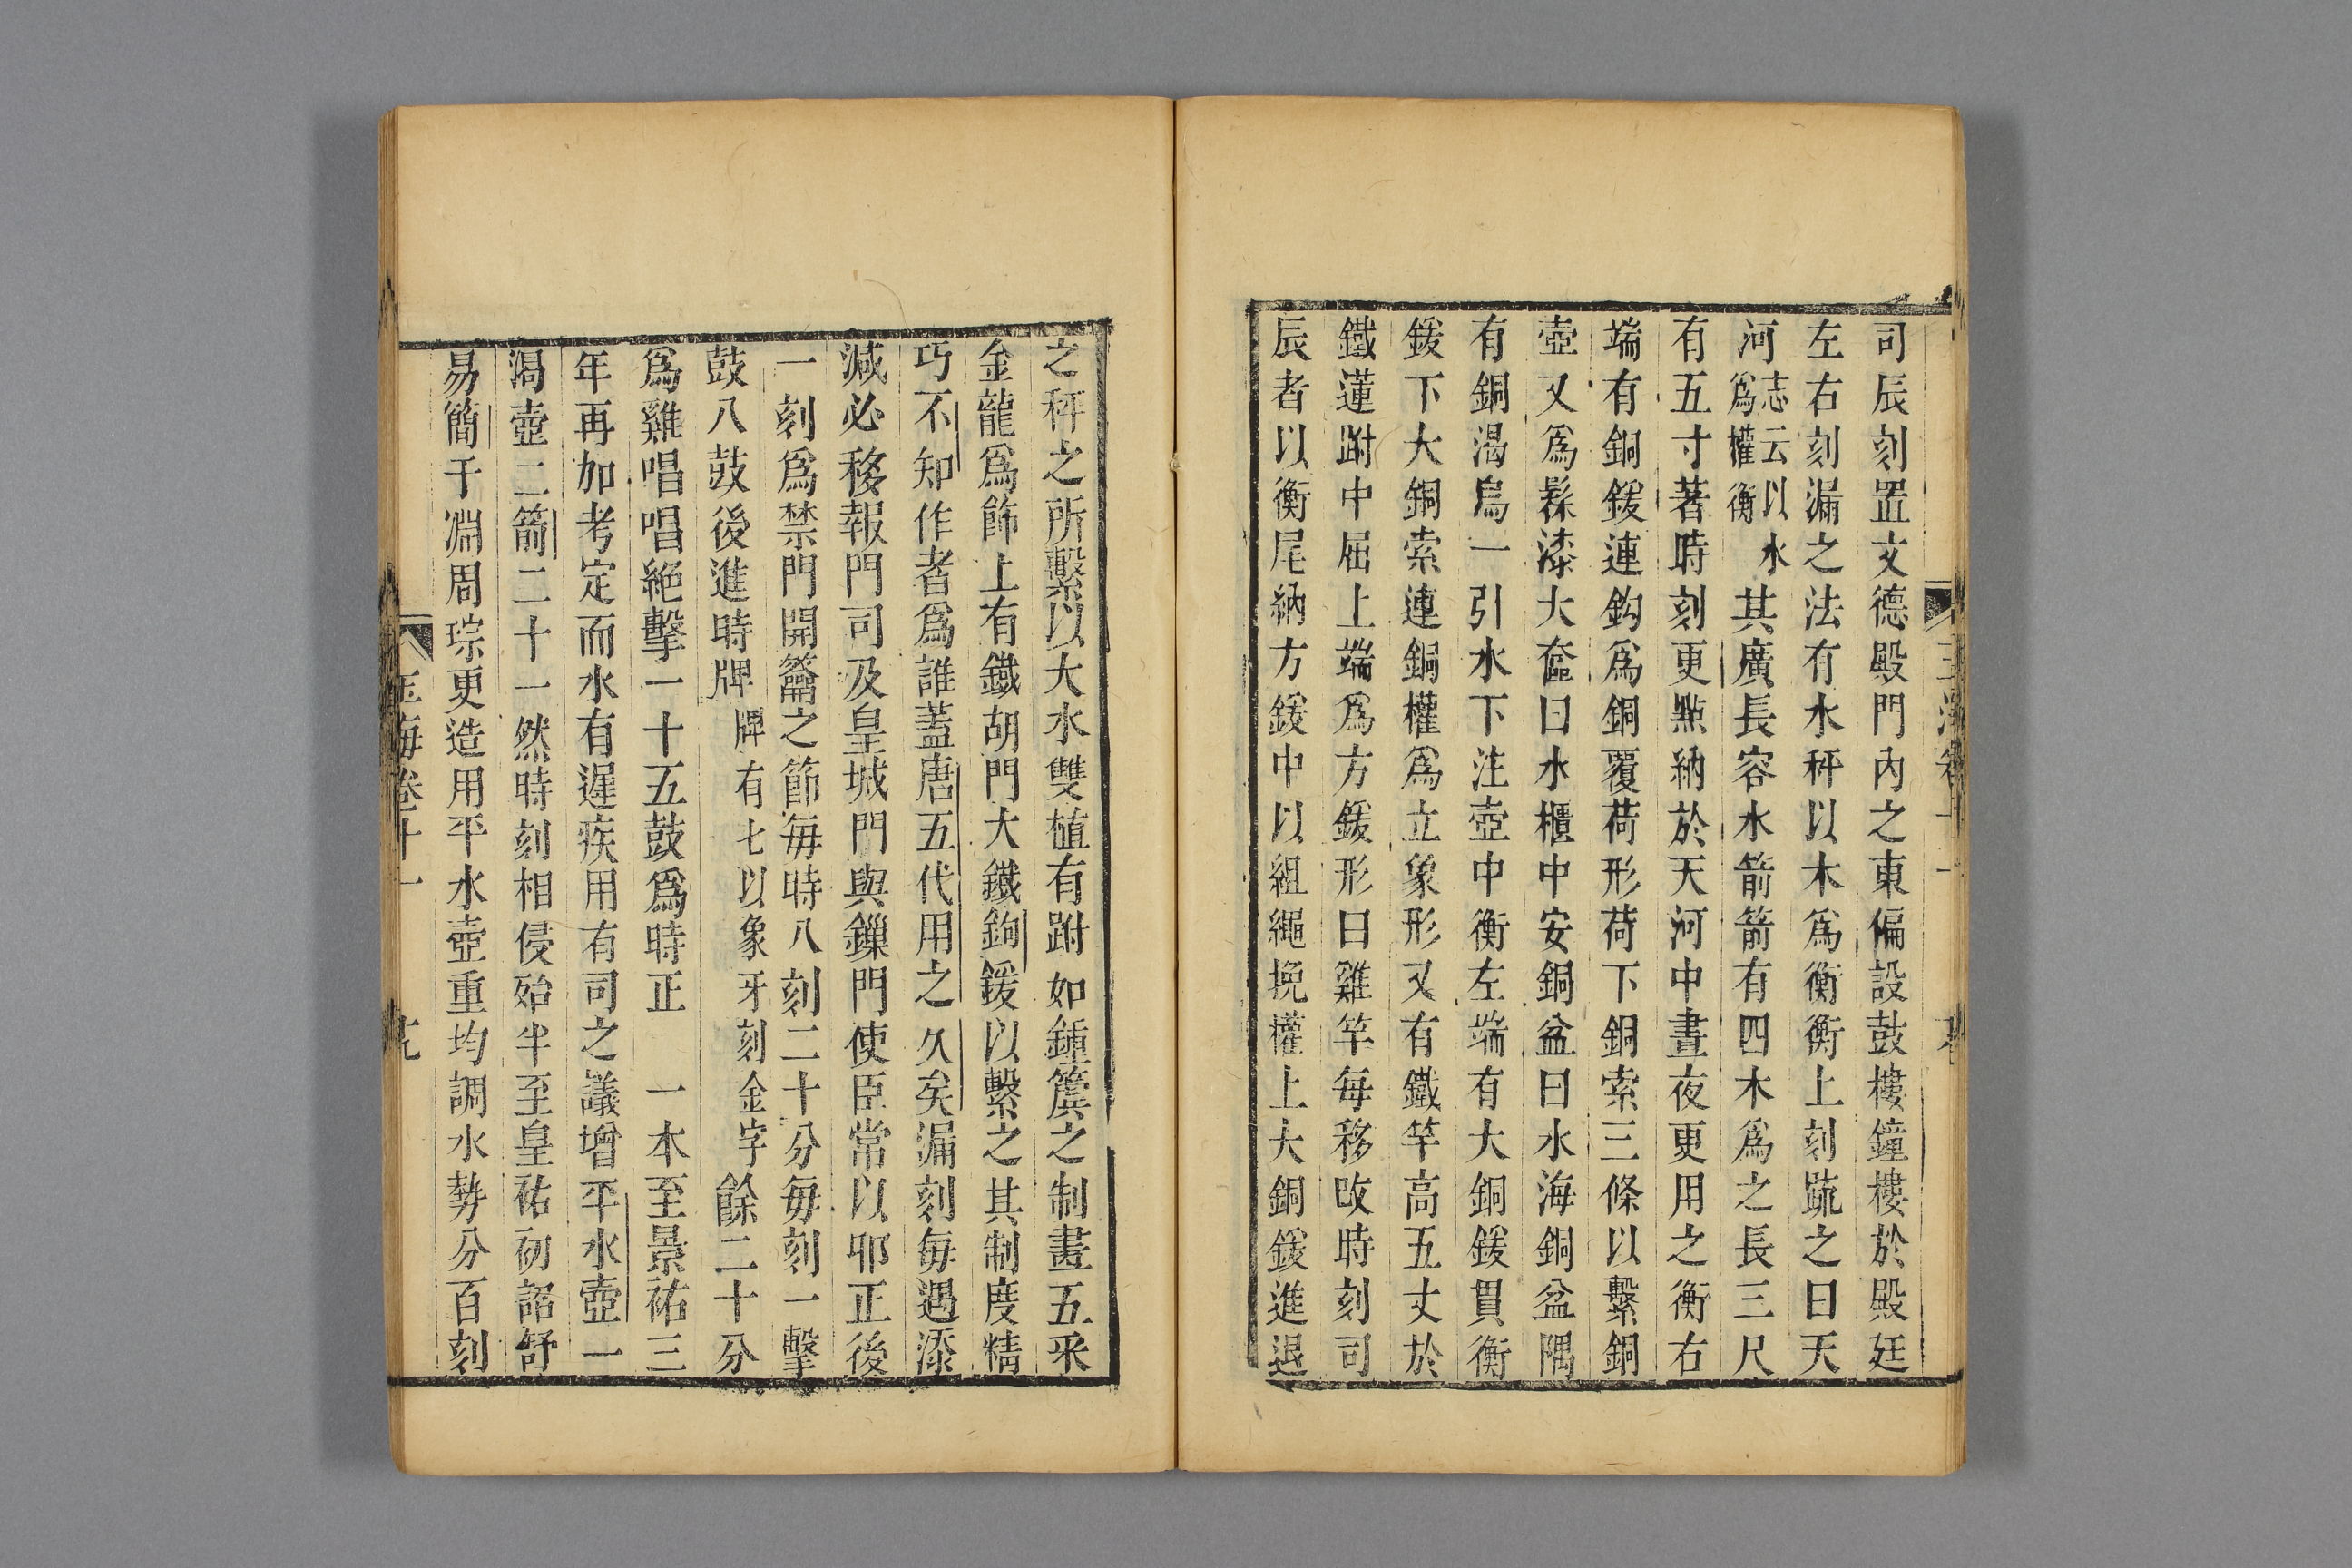 司辰刻置文德殿門內之東偏設鼓樓鐘樓於殿廷
左右刻漏之法有水秤以木爲衡衡上刻疏之曰天
河志云以水爲權衡其廣長容水箭箭有四木爲之長三尺
有五寸著時刻更點納於天河中晝夜更用之衡右
端有銅鍰連鈎爲銅覆荷形荷下銅索三條以繫銅
壺又爲髹漆大奩曰水櫃中安銅盆曰水海銅盆隅
有銅渴烏一引水下注壺中衡左端有大銅鍰貫衡
鍰下大銅索連銅權爲立象形又有鐵竿高五丈於
鐵蓮跗中屈上端爲方鍰形曰雞竿每移改時刻司
辰者以衡尾納方鍰中以組繩挽權上大銅鍰進退
之秤之所繫以大水雙植有跗如鍾簴之制畫五采
金龍爲飾上有鐵胡門大鐵鉤鍰以繫之其制度精
巧不知作者爲誰蓋唐五代用之久矣漏刻每遇添
減必移報門司及皇城門與鏁門使臣常以卯正後
一刻爲禁門開籥之節每時八刻二十分每刻一擊
鼓八鼓後進時牌牌有七以象牙刻金字餘二十分
爲雞唱唱絕擊一十五鼓爲時正 一本至景祐三
年再加考定而水有遲疾用有司之議增平水壺一
渴壺二箭二十一然時刻相侵殆半至皇祐初詔舒
易簡于淵周琮更造用平水壺重均調水勢分百刻
玉海卷十一